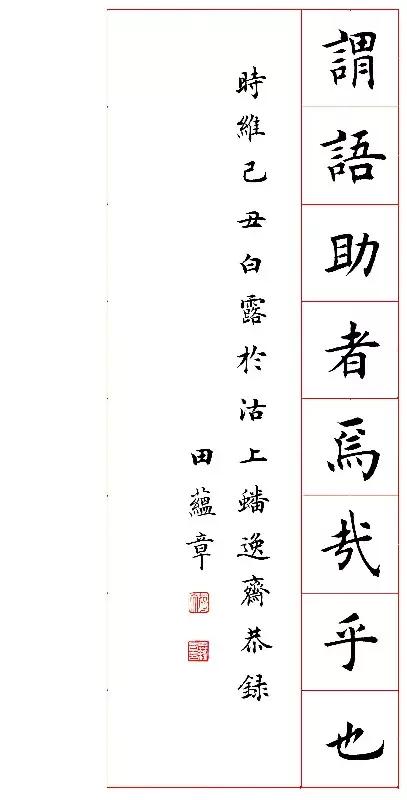 謂語助者焉哉乎也
時維己丑白露於沽上蟠逸齋恭録
田蘊章